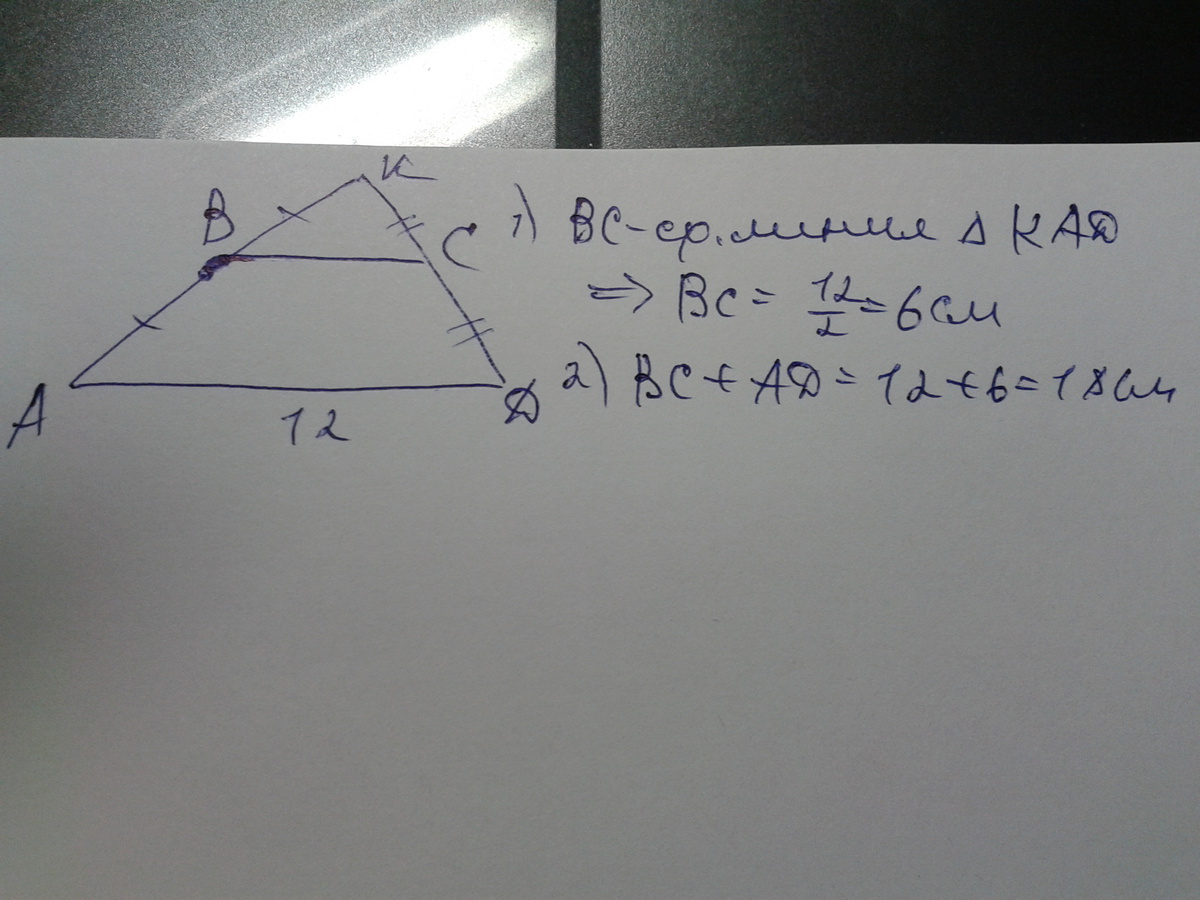 K
B
C
A
D
12
1) BC-ср.линия Δ KAD
=> BC = 12/2 = 6см
2) BC + AD = 12+6=18см